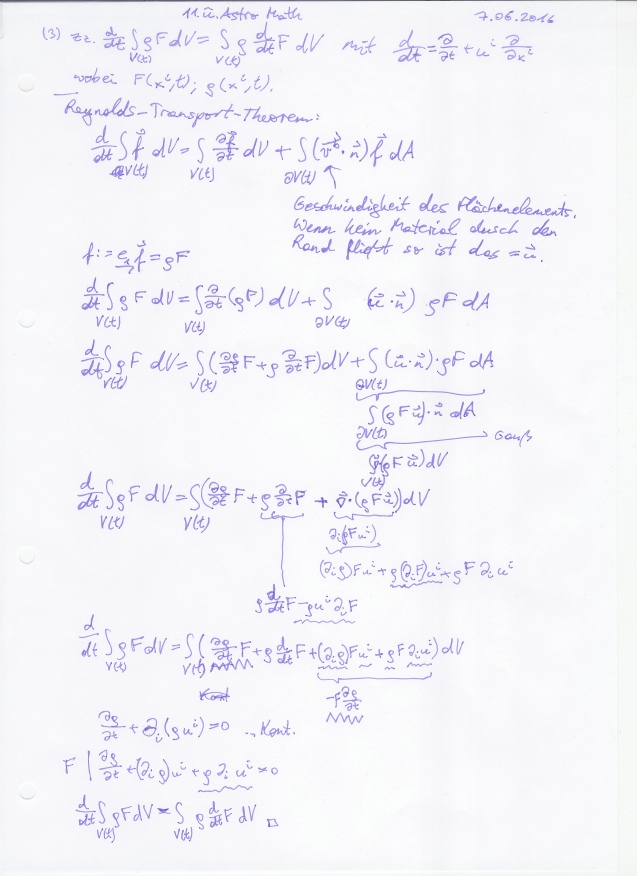 11. ü. Astro Math 7.06.2016
(3) zz. d/dt ∫_{V(t)} ρ F dV = ∫_{V(t)} ρ d/dt F dV mit d/dt = ∂/∂t + u^i ∂/∂x^i
wobei F(x^i,t); ρ(x^i,t).
Reynolds-Transport-Theorem:
d/dt ∫_{V(t)} f⃗ dV = ∫_{V(t)} ∂f⃗/∂t dV + ∫_{∂V(t)} (v⃗^b · n⃗) f⃗ dA
Geschwindigkeit des Flächenelements.
Wenn kein Material durch den
Rand fließt so ist das = u⃗.
f := e_x f⃗ = ρF
d/dt ∫_{V(t)} ρ F dV = ∫_{V(t)} ∂/∂t (ρF) dV + ∫_{∂V(t)} (u⃗ · n⃗) ρF dA
d/dt ∫_{V(t)} ρ F dV = ∫_{V(t)} (∂ρ/∂t F + ρ ∂/∂t F) dV + ∫_{∂V(t)} (u⃗ · n⃗) · ρF dA
∫_{∂V(t)} (ρ F u⃗) · n⃗ dA
Gauß
∫_{V(t)} (ρ F u⃗) dV
d/dt ∫_{V(t)} ρ F dV = ∫_{V(t)} (∂ρ/∂t F + ρ ∂/∂t F + ∇⃗ · (ρ F u⃗)) dV
∂_i(ρ F u^i)
(∂_i ρ) F u^i + ρ (∂_i F) u^i + ρ F ∂_i u^i
ρ d/dt F - ρ u^i ∂_i F
d/dt ∫_{V(t)} ρ F dV = ∫_{V(t)} (∂ρ/∂t F + ρ d/dt F + (∂_i ρ) F u^i + ρ F ∂_i u^i) dV
Kont
-F ∂ρ/∂t
∂ρ/∂t + ∂_i (ρ u^i) = 0 ... Kont.
F | ∂ρ/∂t + (∂_i ρ) u^i + ρ ∂_i u^i = 0
d/dt ∫_{V(t)} ρ F dV = ∫_{V(t)} ρ d/dt F dV □